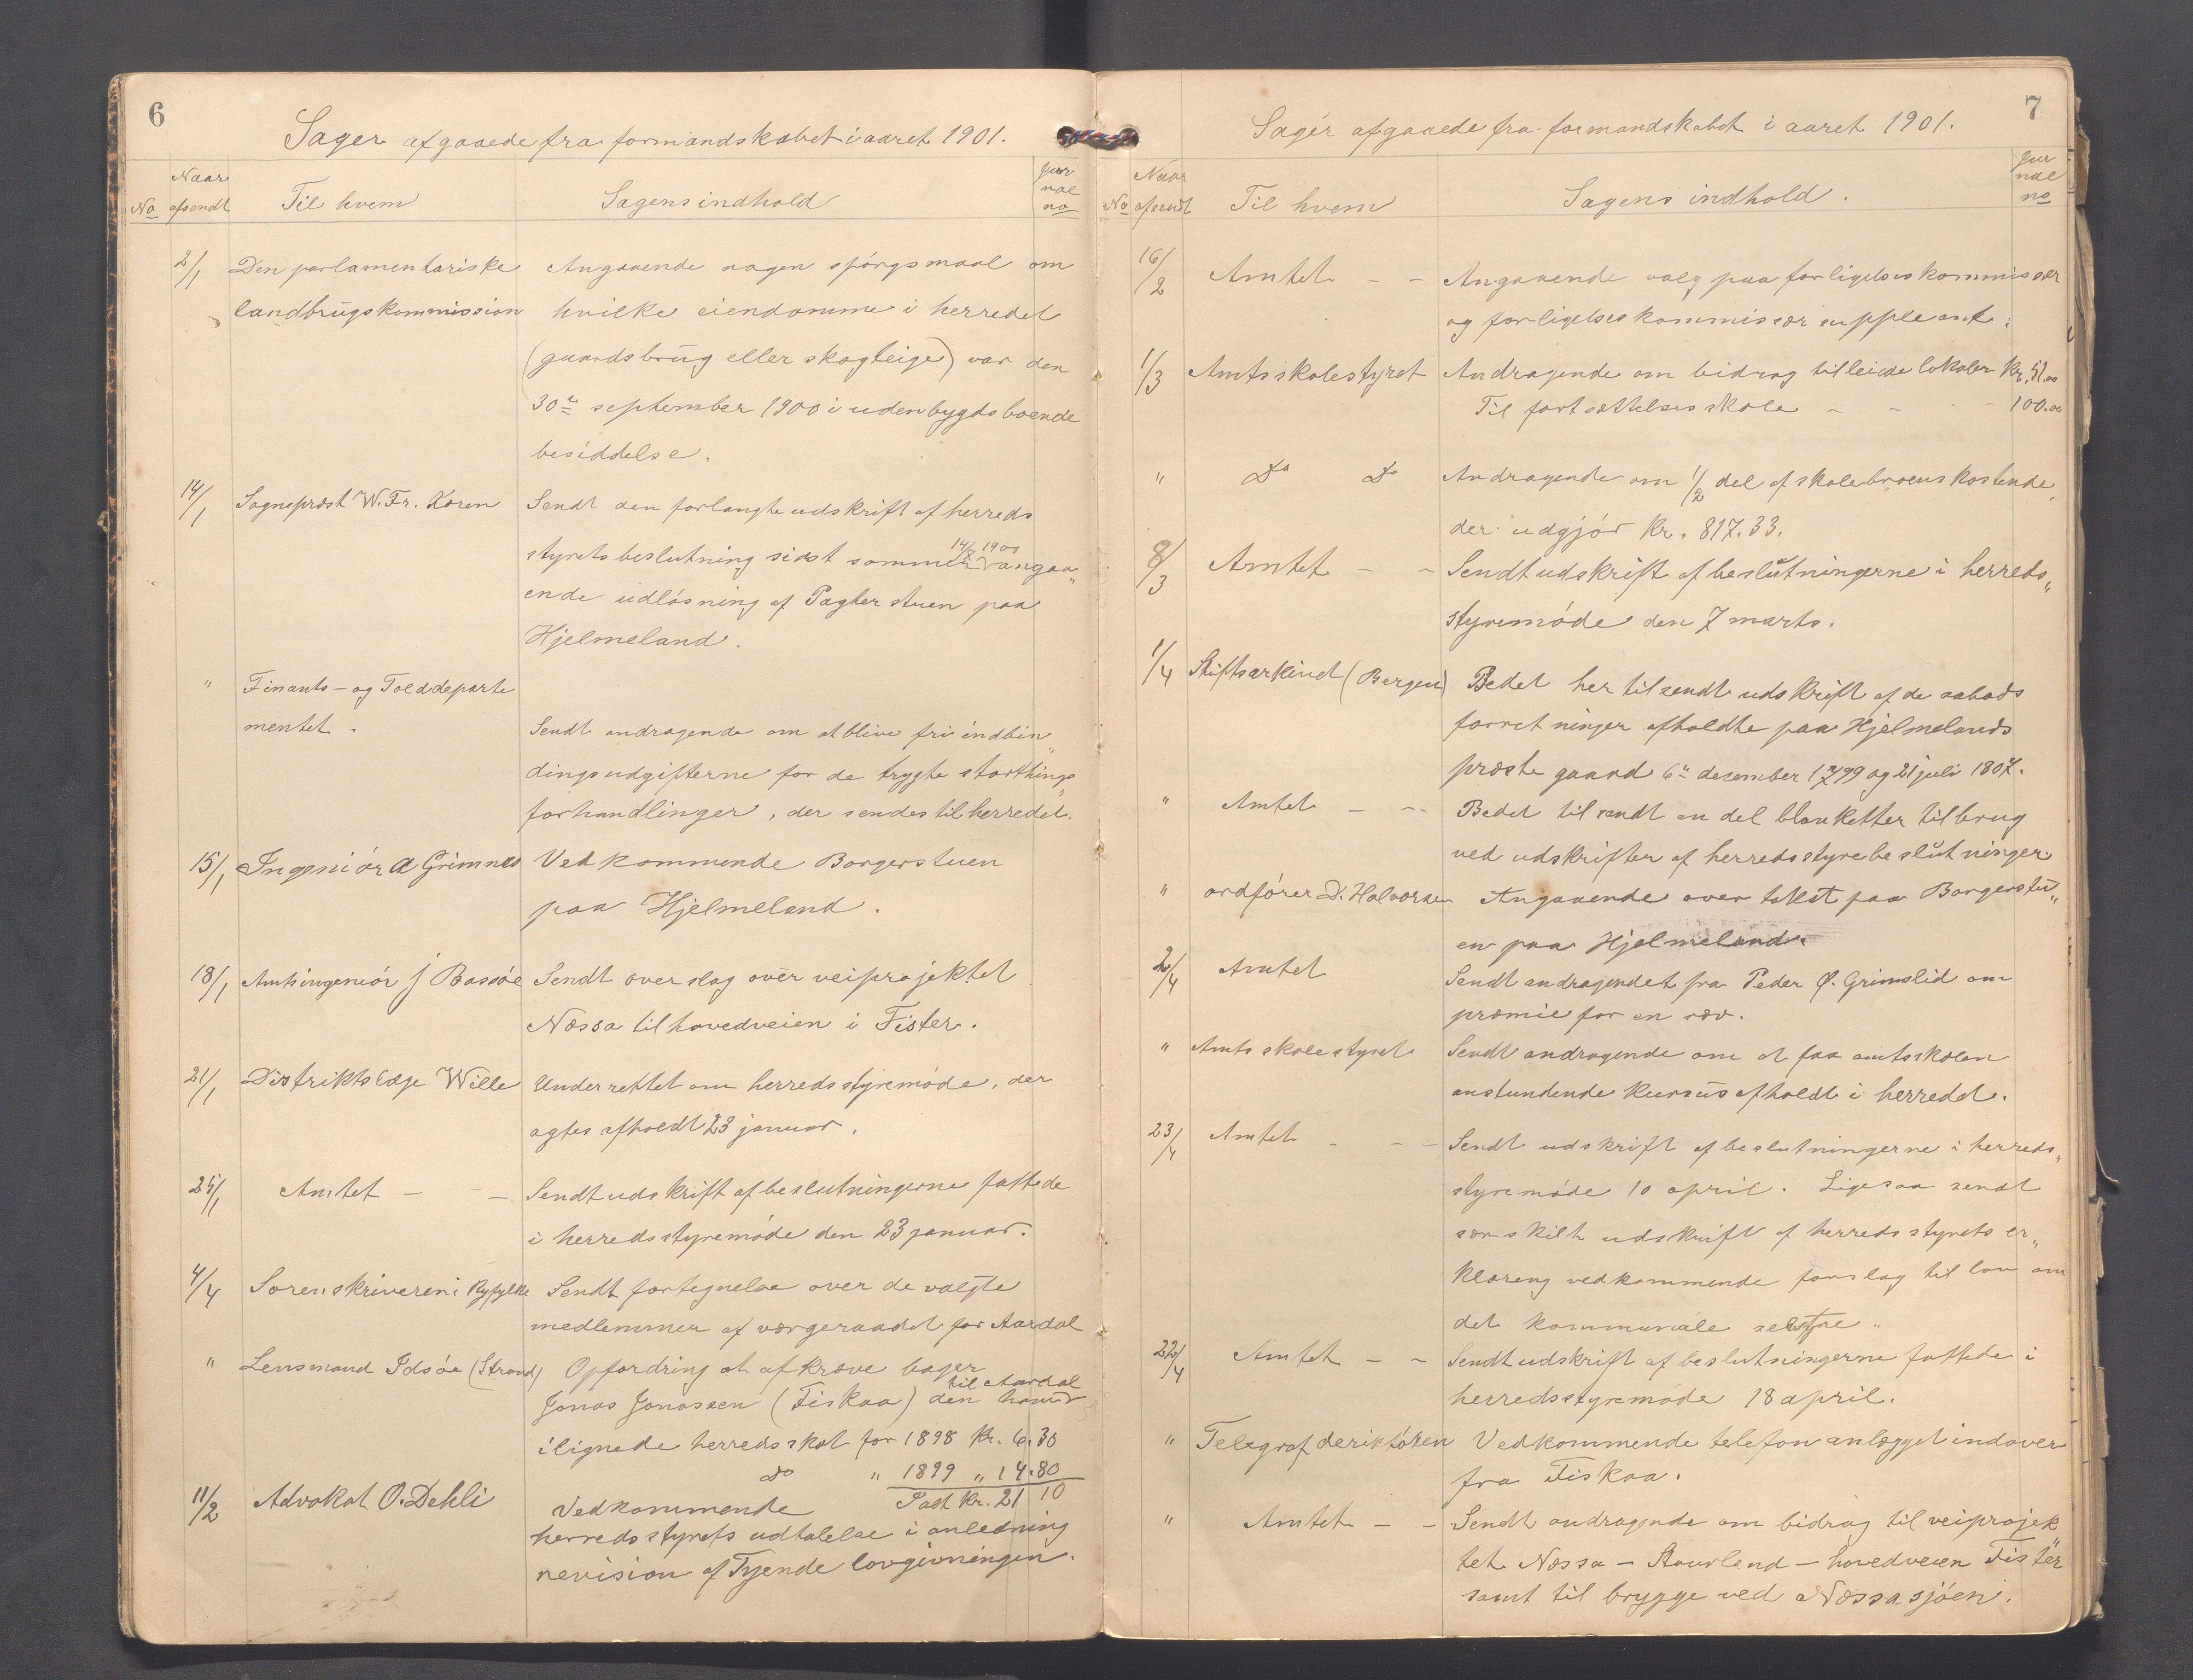 6
Sager afgaaede fra formandskabet i aaret 1901.
No
Naar afsendt
Til hvem
Sagens indhold
Jur nal no
2/1 Den parlamentariske Angaaende nogen spörgsmaal om
landbrugskommission hvilke eiendomme i herredet
(gaardsbrug eller skogteige) var den
30te september 1900 i udenbygds boende
besiddelse.
14/1 Sogneprest W. Fr. Koren Sendt den forlangte udskrift af herreds
styrets beslutning sidst sommer 14/8 1900 angaa„
ende udlösning af Pagterstuen paa
Hjelmeland.
" Finants- og Tolddeparte
mentet. Sendt andragende om at blive fri indbin„
dingsudgifterne for de trygte storthings„
forhandlinger, der sendes til herredet.
15/1 Ingeniör A Grimnes Vedkommende Borgerstuen
paa Hjelmeland.
18/1 Amtsingeniör J Bassöe Sendt overslag over veiprojektet
Næssa til hovedveien i Fister.
21/1 Distriktslæge Wille Underrettet om herredsstyremöde, der
agtes afholdt 23 januar.
25/1 Amtet - - - Sendt udskrift af beslutningerne fattede
i herredsstyremöde den 23 januar.
4/4 Sorenskriveren i Ryfylke Sendt fortegnelse over de valgte
medlemmer af vergeraadet for Aardal
" Lensmand Idsöe (Strand) Opfordring at afkræve bager
Jonas Jonassen (Fiskaa) den ham til Aardal
ilignede herredsskat for 1898 Kr. 6.30
do " 1899 " 14.80
11/2 Advokat O. Dehli Vedkommende Tast Kr. 21 10
herredsstyrets udtalelse i anledning
revision af Tyende lovgivningen.
7
Sager afgaaede fra formandskabet i aaret 1901.
No
Naar afsendt
Til hvem
Sagens indhold.
Jur nal no
16/2 Amtet - - Angaaende valg paa forligelseskommissær
og forligelseskommissær suppleant.
1/3 Amtsskolestyret Andragende om bidrag til leiede lokaler Kr. 51.00
Til fortsættelsesskole - - - 100.00
" Do Do Andragende om 1/2 del af skolebroens kostende,
der udgjör Kr. 817.33.
8/3 Amtet - - Sendt udskrift af beslutningerne i herreds„
styremöde den 7 marts.
1/4 Stiftsarkivet (Bergen) Bedet hertilsendt udskrift af de aabods
forretninger afholdte paa Hjelmelands
præstegaard 6te desember 1799 og 21 juli 1807.
" Amtet - - Bedet tilsendt en del blanketter til brug
ved udskrifter af herredsstyrebeslutninger
" ordförer D. Halvorsen Angaaende over takst paa Borgerstu„
en paa Hjelmeland.
2/4 Amtet Sendt andragendet fra Peder Ø. Grimslid om
præmie for en ræv.
" Amtsskolestyret Sendt andragende om at faa amtsskolen
anstundende kursus afholdt i herredet.
23/4 Amtet - - - Sendt udskrift af beslutningerne i herreds„
styremöde 10 april. Ligesaa sendt
særskilt udskrift af herredsstyrets er„
klæring vedkommende forslag til lov om
det kommunale selvstyre.
22/4 Amtet - - Sendt udskrift af beslutningerne fattede i
herredsstyremöde 18 april.
" Telegrafderiktören Vedkommende telefonanlægget indover
fra Fiskaa.
" Amtet - - Sendt andragende om bidrag til veiprojek
tet Næssa - Staurland - hovedveien Fister
samt til brygge ved Næssasjöen.